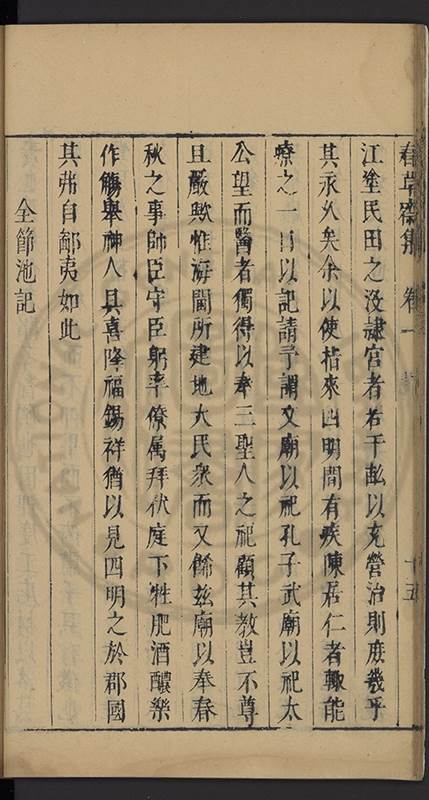 春草齋集 卷一 十五
江塗民田之沒隸官者若干畝以充營治則庶幾乎
其永久矣余以使指來四明間有疾陳居仁者輒能
療之一日以記請予謂文廟以祀孔子武廟以祀太
公望而醫者獨得以奉三聖人之祀顧其教豈不尊
且嚴歟惟海閫所建地大民衆而又餙茲廟以奉春
秋之事帥臣守臣躬率僚屬拜伏庭下牲肥酒醲樂
作觴舉神人具喜隆福錫祥猶以見四明之於郡國
其弗自鄙夷如此
全節池記